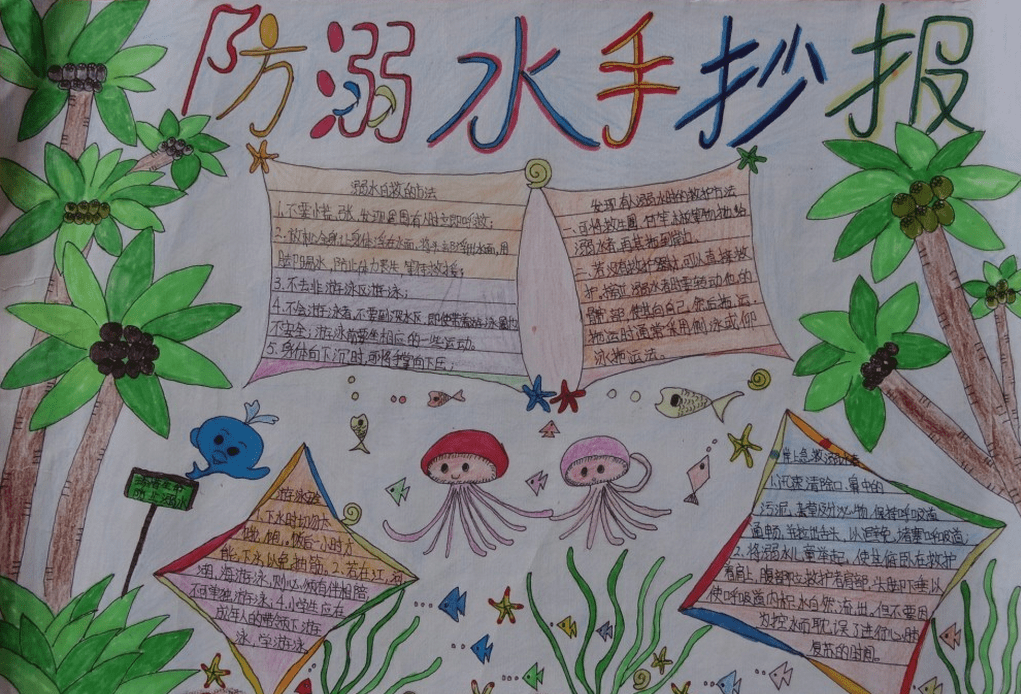 防溺水手抄报
溺水自救的方法
1.不要慌张,发现周围有人时立即呼救;
2.放松全身,让身体浮在水面,将头部浮出水面,用
脚踢水,防止体力丧失,等待救援;
3.不去非游泳区游泳;
4.不会游泳者,不要到深水区,即使带着救泳圈也
不安全;游泳前要坐相应的一些运动。
5.身体向下沉时,可将手掌向下压;
发现有人溺水时的救护方法
一、可将救生圈、竹竿、木板等物抛给
溺水者,再其拖到岸边
二、若没有救护器材,可以直接救
护。接近溺水者时要转动他的
髋部,使背向自己,然后拖运。
拖运时通常采用侧泳或仰
泳拖运法。
珍爱生命
防止溺水
1.下水时切勿太
饿、饱。饭后一小时才
能下水,以免抽筋;2.若在江、河
湖、海游泳,则必须有伴相陪
不可单独游泳;4.小学生应在
成年人的带领下游
泳、学游泳
岸上急救溺水者
1.迅速清除口、鼻中的
污泥、杂草及分泌物,保持呼吸道
通畅,并拉出舌头,以避免堵塞呼吸道;
2.将溺水儿童举起,使其俯卧在救护
者肩上,腹部贴救护者肩部,头脚下垂以
使呼吸道内积水自然流出,但不要因
为控水而耽误了进行心肺
复苏的时间。